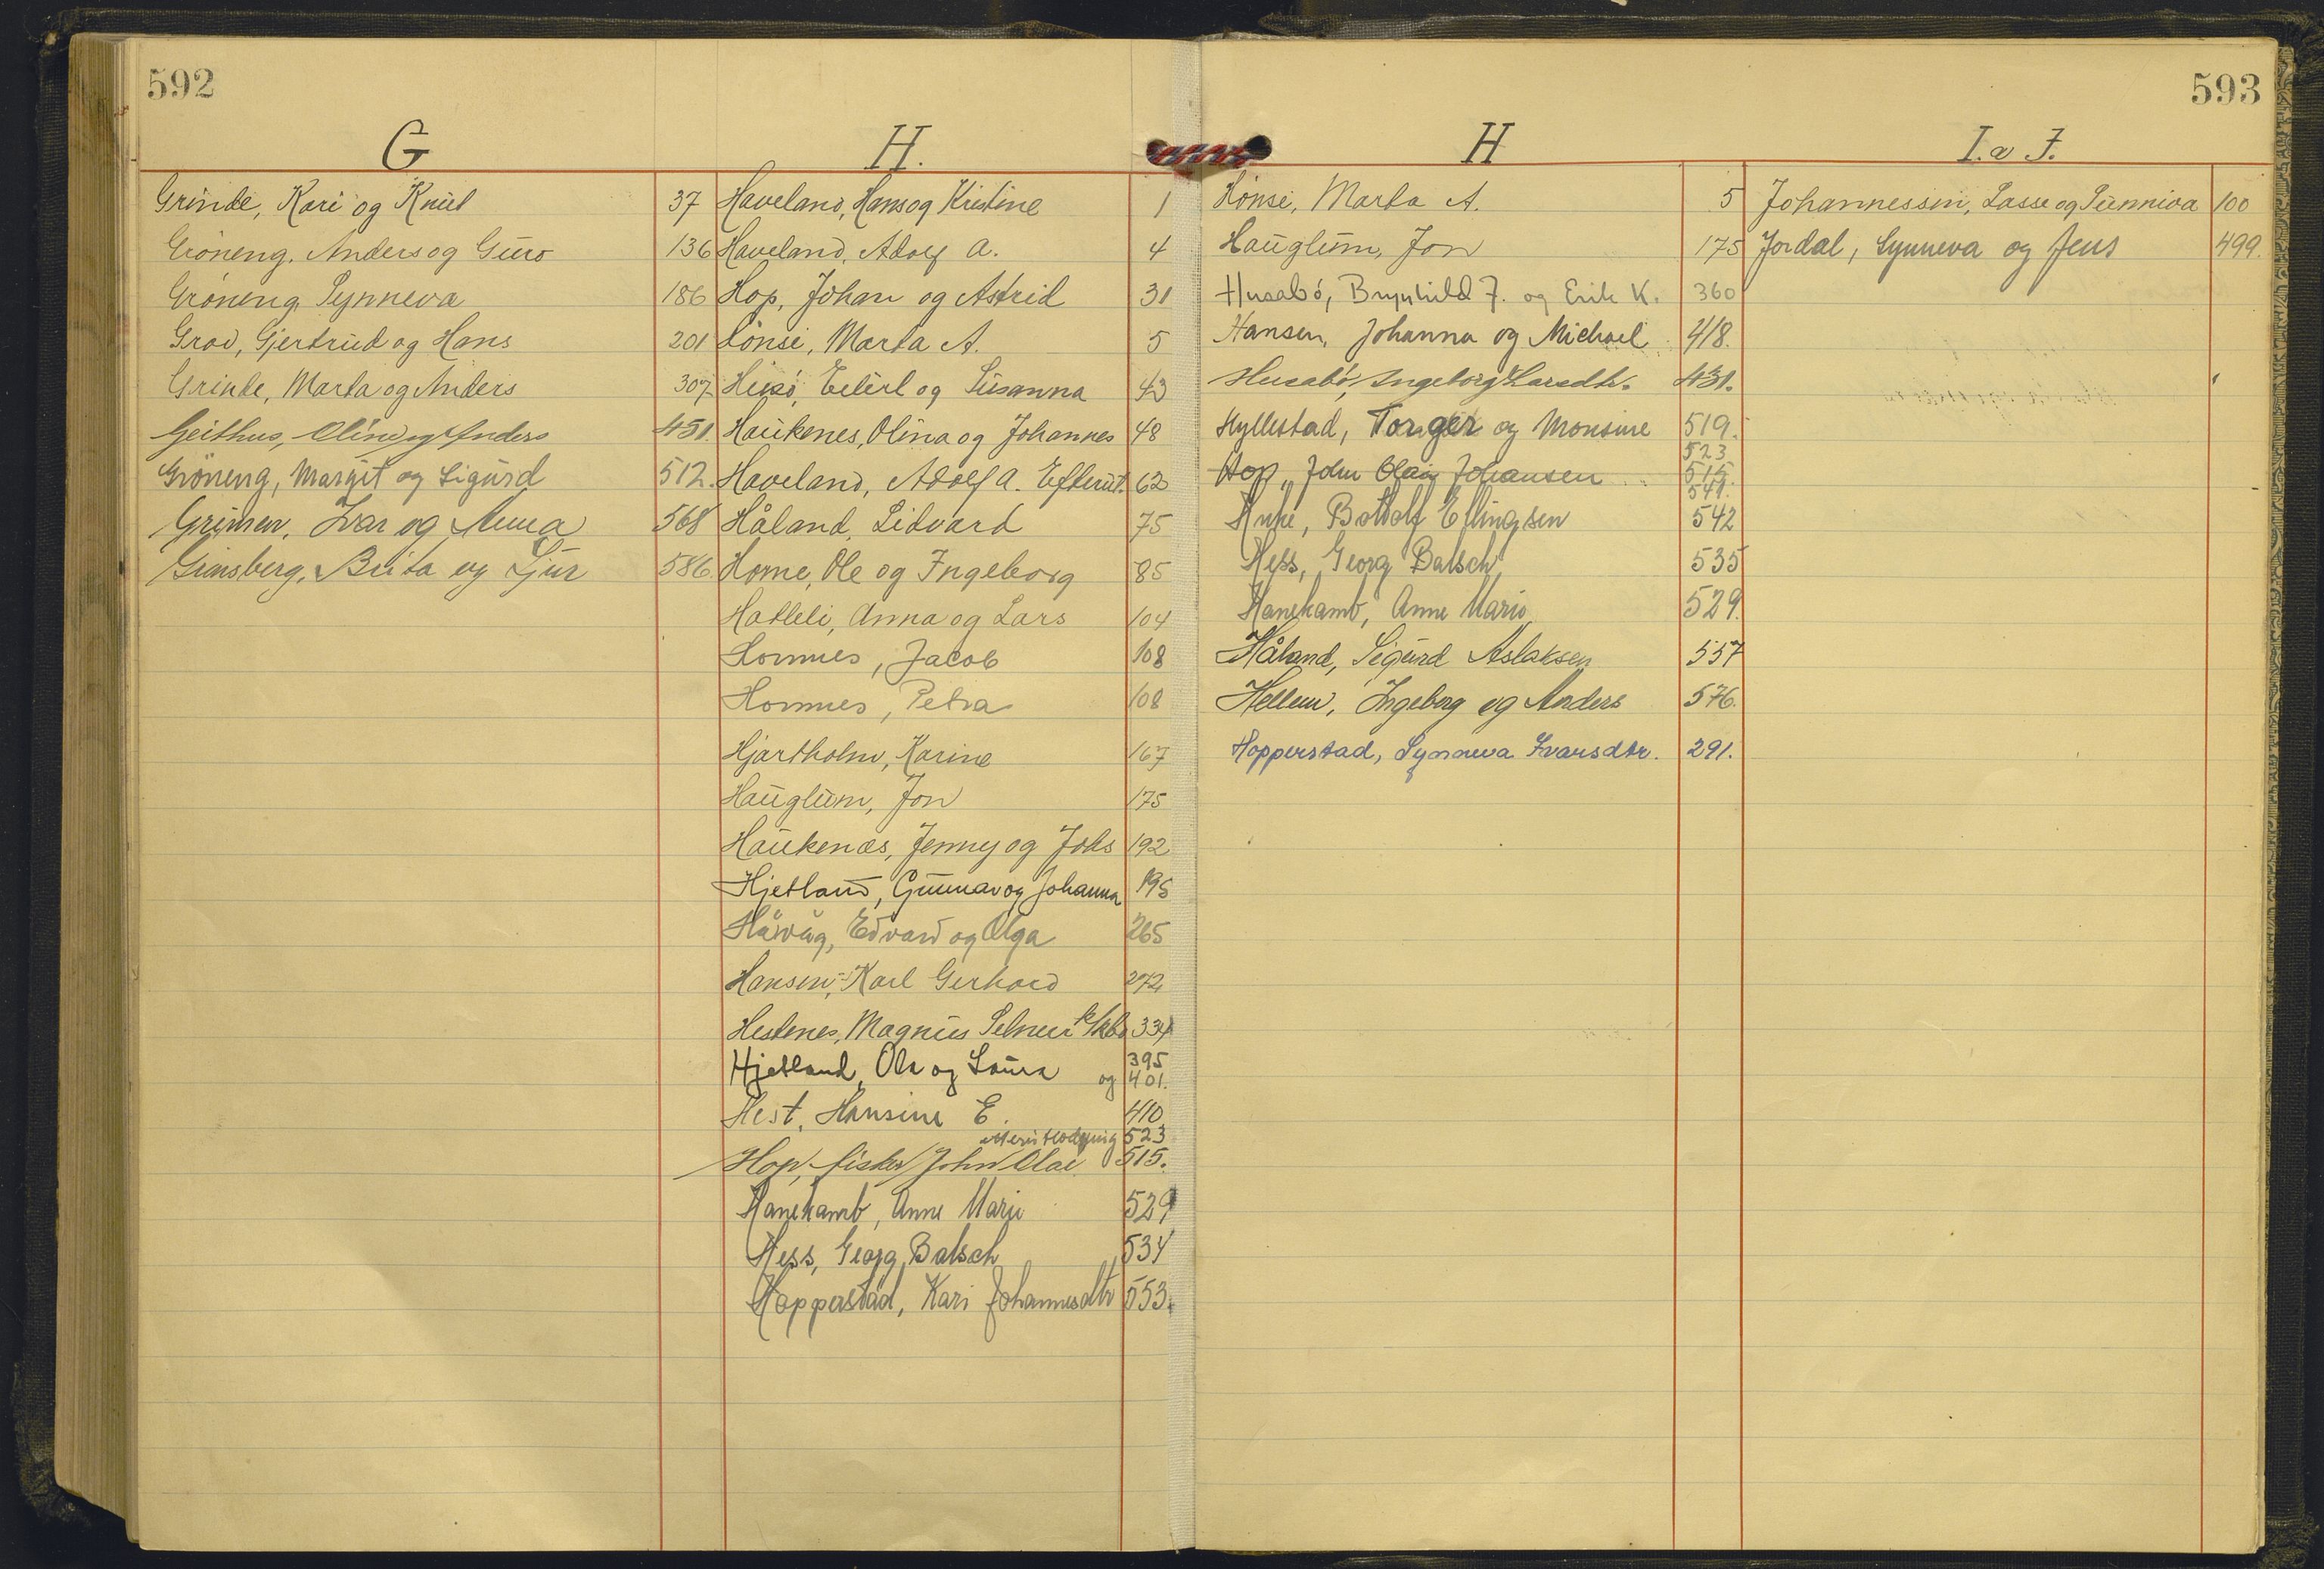 592
G
Grinde, Kari og Knut 37
Gröneng, Anders og Guro 136
Gröneng, Synneva 186
Grov, Gjertrud og Hans 201
Grinde, Marta og Anders 307
Geithus, Olina og Anders 451.
Gröneng, Margit og Sigurd 512.
Grimen, Ivar og Anna 568
Ginsberg, Brita og Sjur 586.
H.
Haveland, Hans og Kristine 1
Haveland, Adolf A. 4
Hop, Johan og Astrid 31
Hönsi, Marta A. 5
Husö, Eilert og Susanna 43
Haukenes, Olina og Johannes 48
Haveland, Adolf A. Efterut. 62
Håland, Sidvard 75
Horne, Ole og Ingeborg 85
Hatleli, Anna og Lars 104
Hornnes, Jacob 108
Hornnes, Petra 108
Hjartholm, Karine 167
Hauglum, Jon 175
Haukenæs, Jenny og Johs 192
Hjetland, Gunnar og Johanna 195
Håvåg, Edvard og Olga 265
Hansen, Karl Gerhard 272
Hestenes, Magnus Selmer 334
Hjetland, Ola og Laura 395 og 401.
Hest, Hansine E. 410
523
Hop, fisker John Olai 515.
Hanekamb, Anne Marie 529
Hess, Georg Batsch 534
Hopperstad, Kari Johannesdtr 553.
593
H
Hönsi, Marta A. 5
Hauglum, Jon 175
Husabö, Brynhild J. og Erik K. 360
Hansen, Johanna og Michael 418.
Husabö, Ingeborg Larsdtr. 431.
Hyllestad, Torger og Monsine 519.
523
Hop, John Olai Johansen 515.
541.
Botholf Ellingsen 542
Hess, Georg Batsch 535
Hanekamb, Anne Marie 529.
Håland, Sigurd Aslaksen 557
Hellem, Ingeborg og Anders 576.
Hopperstad, Synneva Ivarsdtr. 291.
I. o J.
Johannessen, Lasse og Sunniva 100
Jordal, Synneva og Jens 499.